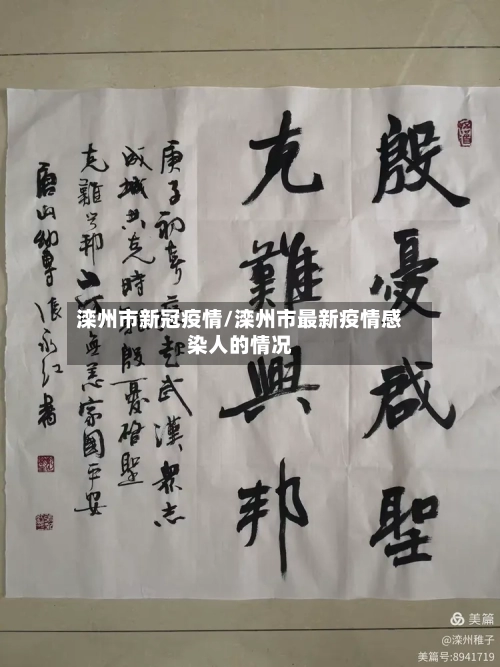 殷憂啟聖
克難興邦
庚子初春起武漢眾志
成城共克時殷憂啓聖
克難興邦山無恙家國平安
唐山幼專張永红書
滦州市新冠疫情/滦州市最新疫情感
染人的情况
美篇
@滦州稚子
美篇号:8941719